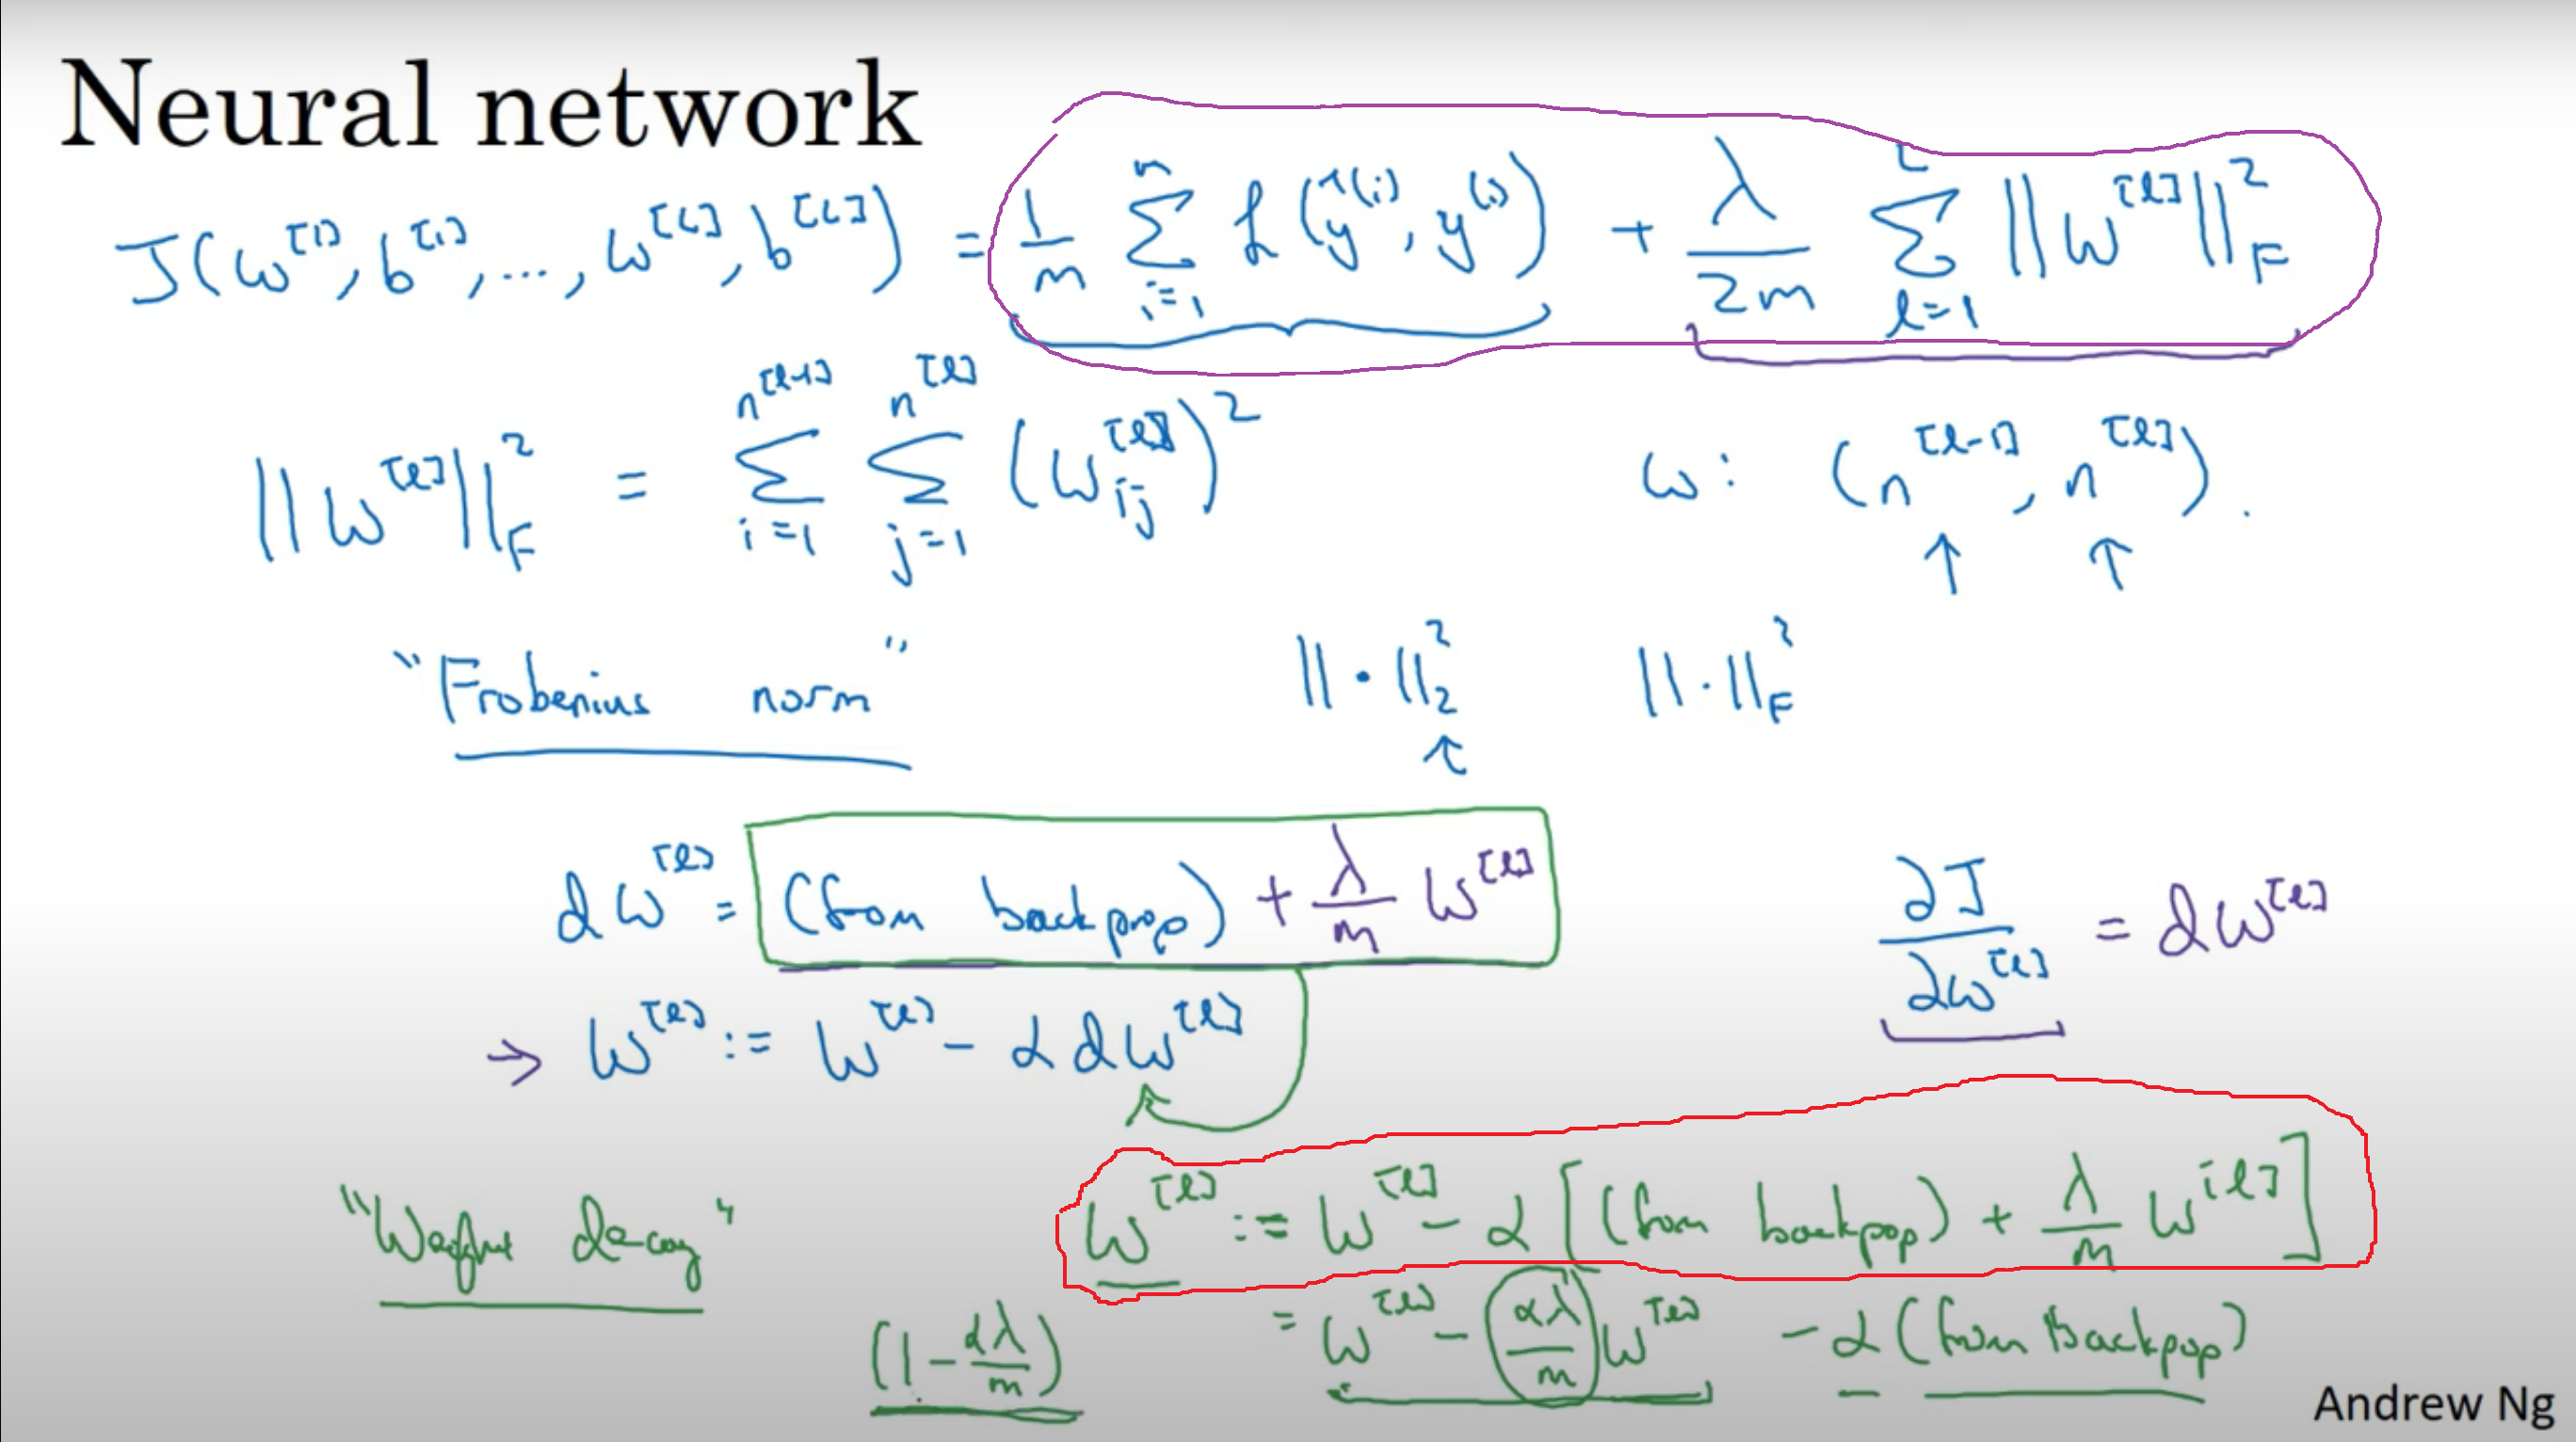 Neural network
J(ω^[1], b^[1], ..., ω^[L], b^[L]) = 1/m Σ_{i=1}^{m} ℒ(ŷ^(i), y^(i)) + λ/2m Σ_{l=1}^{L} ||ω^[l]||_F^2
||ω^[l]||_F^2 = Σ_{i=1}^{n^[l-1]} Σ_{j=1}^{n^[l]} (ω_ij^[l])^2   ω: (n^[l-1], n^[l]).
"Frobenius norm"   ||·||_2^2   ||·||_F^2
dω^[l] = (from backprop) + λ/m ω^[l]   ∂J/∂ω^[l] = dω^[l]
→ ω^[l] := ω^[l] - α dω^[l]
"Weight decay"   ω^[l] := ω^[l] - α [(from backpop) + λ/m ω^[l]]
(1 - αλ/m)   = ω^[l] - αλ/m ω^[l] - α (from Backpop)
Andrew Ng